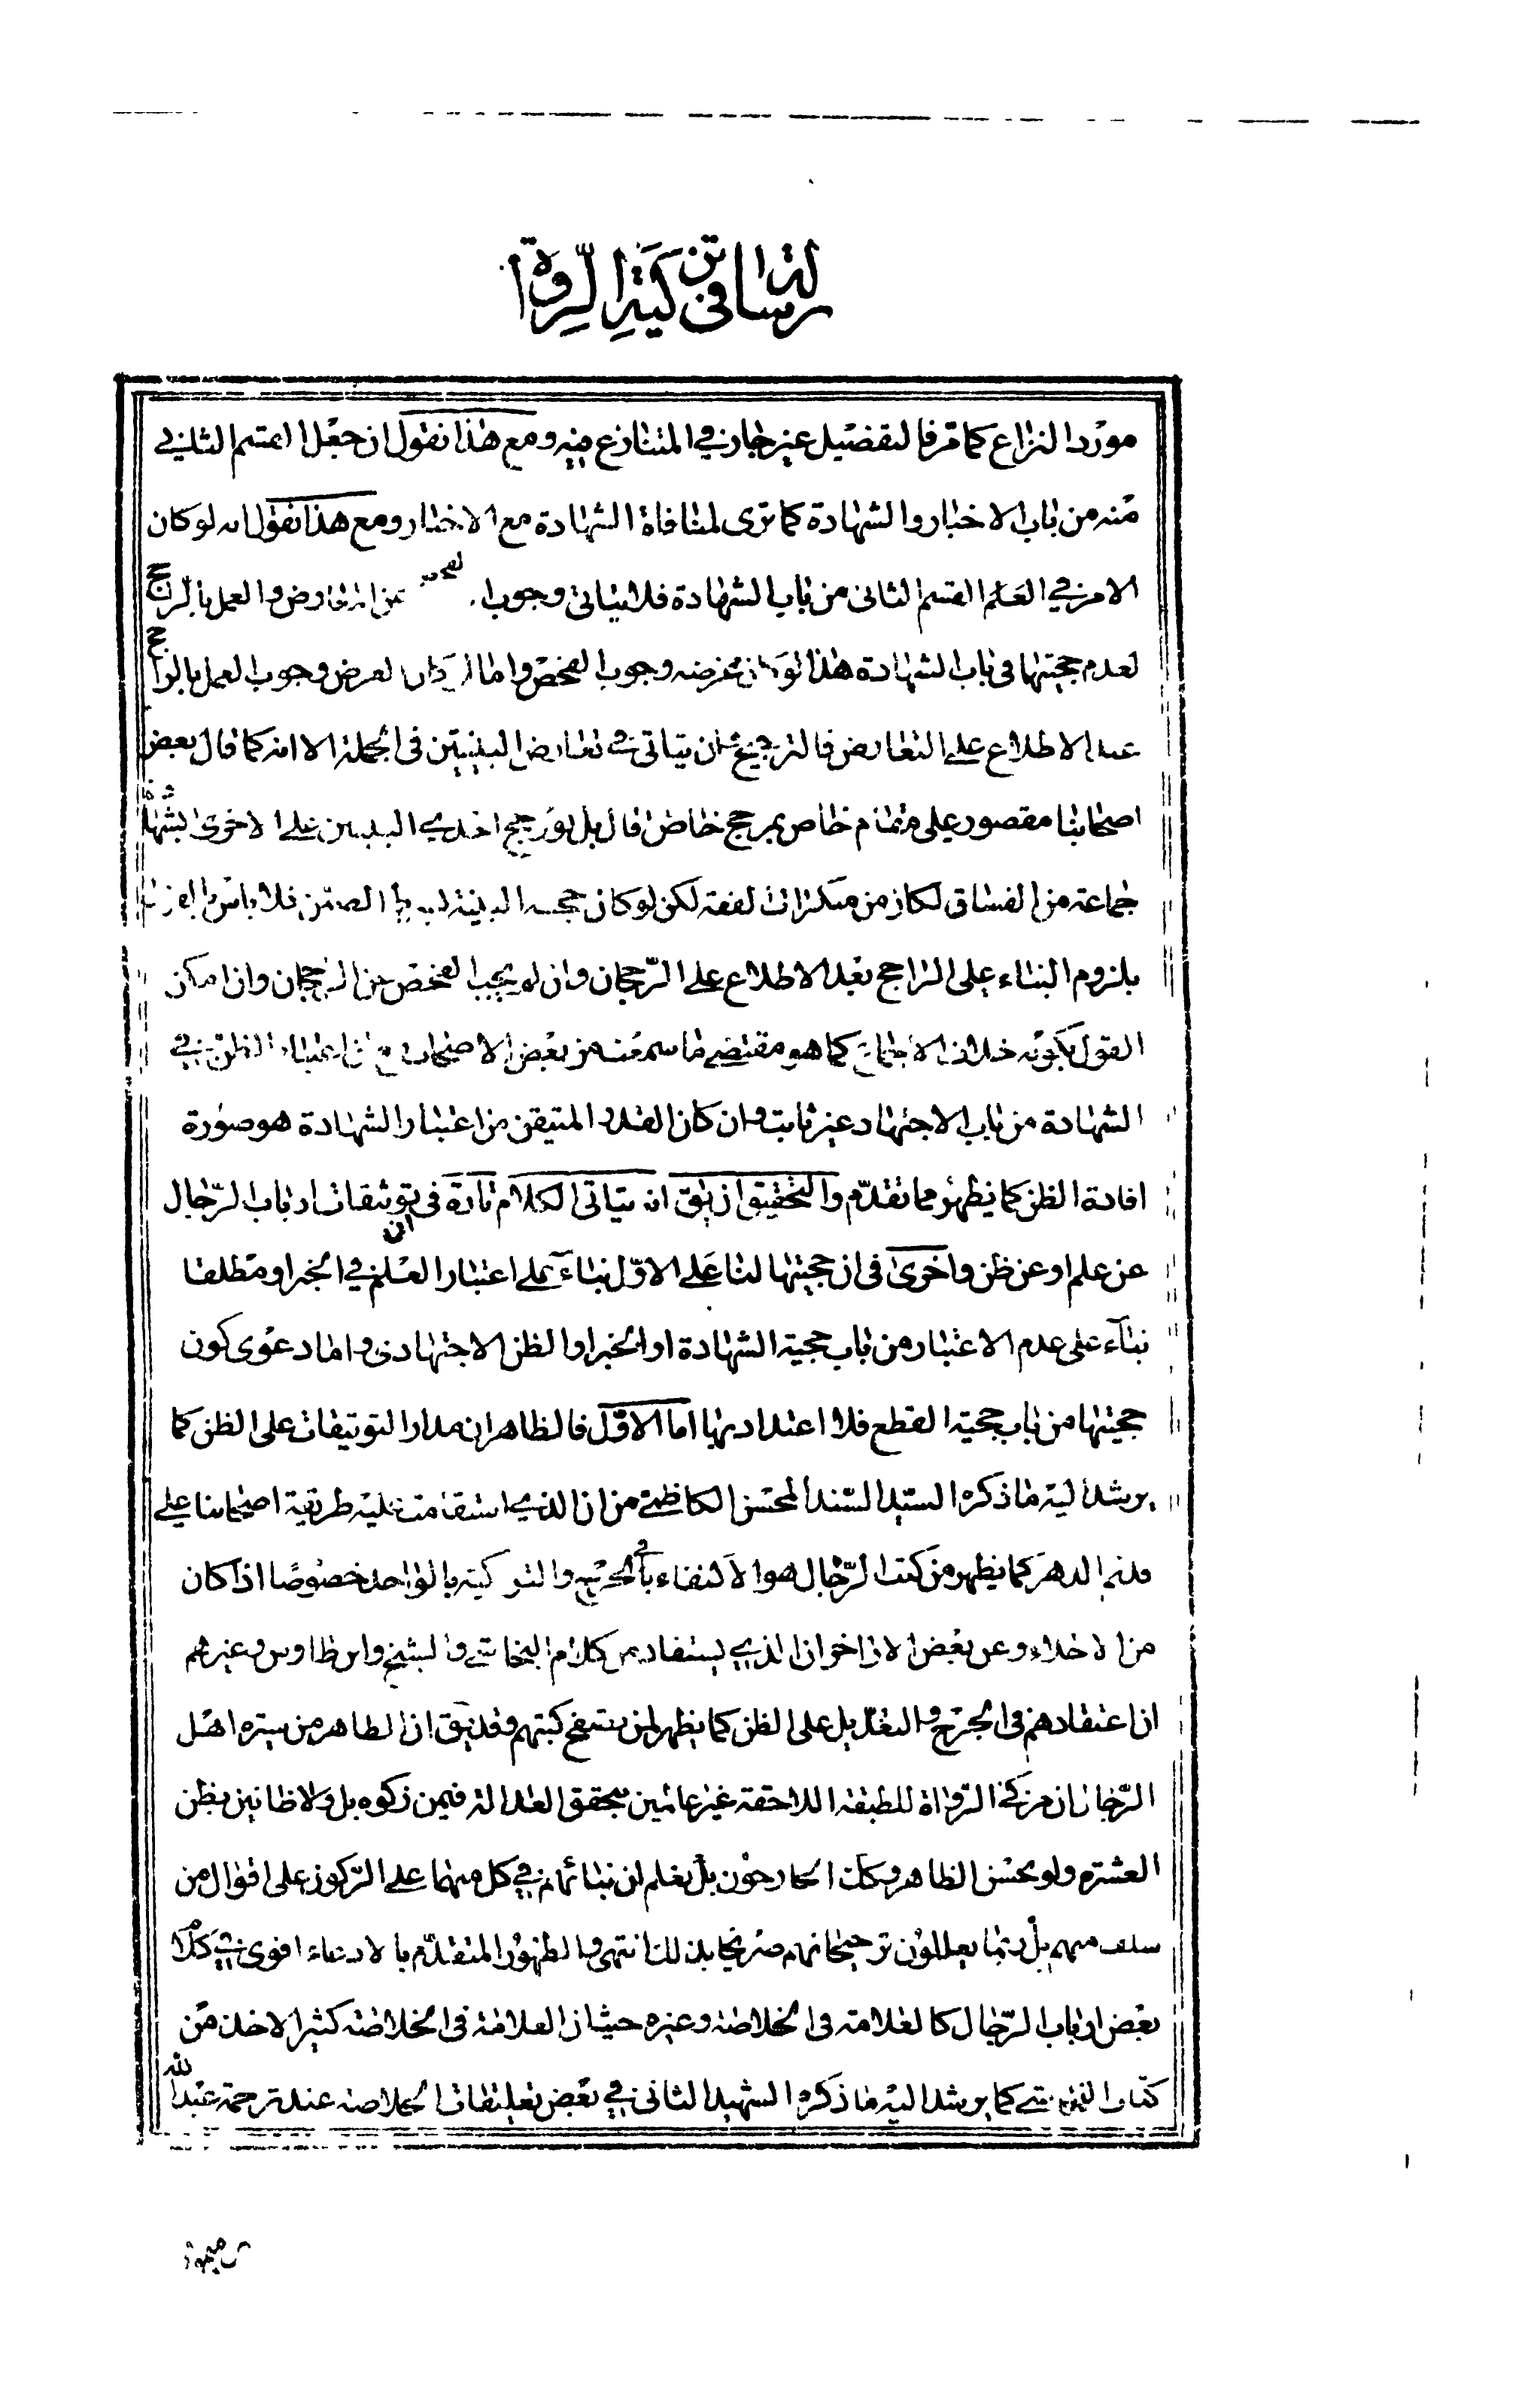 رسالة في تزكية الرواة
مورد النزاع كما مر فالتفصيل غير جار في المتنازع فيه ومع هذا نقول ان جعل القسم الثاني
منه من باب الاخبار والشهادة كما ترى لمنافاة الشهادة مع الاخبار ومع هذا نقول انه لو كان
الامر في العلم القسم الثاني من باب الشهادة فلا يتاتى وجوب الفحص عن المعارض والعمل بالراجح
لعدم حجيتها في باب الشهادة هذا لو كان غرضه وجوب الفحص واما لو كان الغرض وجوب العمل بالراجح
عند الاطلاع على التعارض فالترجيح وان يتاتى في تعارض البينتين في الجملة الا انه كما قال بعض
اصحابنا مقصور على مقام خاص بمرجح خاص قال بل ترجيح احدى البينتين على الاخرى بشهادة
جماعة من الفساق لكان من منكرات الفقه لكن لو كان حجية البينة فلا باس بالقول
بلزوم البناء على الراجح بعد الاطلاع على الرجحان وان لم يجب الفحص عن الرجحان وان امكن
القول بكونه خلاف الاجماع كما هو مقتضى ما سمعته من بعض الاصحاب مع ان اعتبار الظن في
الشهادة من باب الاجتهاد غير ثابت وان كان القدر المتيقن من اعتبار الشهادة هو صورة
افادة الظن كما يظهر مما تقدم والتحقيق ان يق انه يتاتى الكلام تارة في ان توثيقات ارباب الرجال
عن علم او عن ظن واخرى في ان حجيتها لنا على الاول بناء على اعتبار العلم في الخبر او مطلقا
بناء على عدم الاعتبار من باب حجية الشهادة او الخبر او الظن الاجتهادى واما دعوى كون
حجيتها من باب حجية القطع فلا اعتداد بها اما الاول فالظاهر ان مدار التوثيقات على الظن كما
يرشد اليه ما ذكره السيد السند المحسن الكاظمي من ان الذي استقامت عليه طريقة اصحابنا على
قديم الدهر كما يظهر من كتب الرجال هو الاكتفاء في الجرح والتزكية بالواحد خصوصا اذا كان
من الاجلاء وعن بعض الاخوان الذي يستفاد من كلام النجاشي والشيخ وابن طاوس وغيرهم
ان اعتقادهم في الجرح والتعديل على الظن كما يظهر لمن يتصفح كتبهم وقد يق ان الظاهر من سيرة اهل
الرجال ان مزكي الرواة للطبقة اللاحقة غير عالمين بتحقق العدالة فيمن زكوه بل ولا ظانين بظن
العشرة ولو بحسن الظاهر وكك الجارحون بل يعلم ان بنائهم في كل منهما على الركون على اقوال من
سلف منهم بل ربما يعللون ترجيحاتهم صريحا بذلك انتهى والظهور المتقدم بالادعاء اقوى في كلام
بعض ارباب الرجال كالعلامة في الخلاصة وغيره حيث ان العلامة في الخلاصة كثير الاخذ من
كتاب النجاشي كما يرشد اليه ما ذكره الشهيد الثاني في بعض تعليقات الخلاصة عند ترجمة عبد الله
بن ميمون